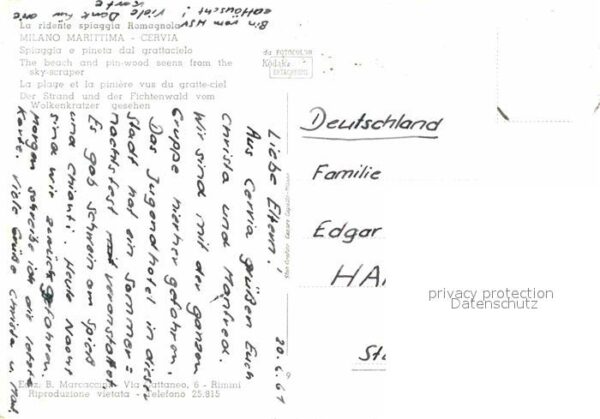 Bin vom HSV
enttäuscht! Viele Dank für die
Karte
La ridente spiaggia Romagnola
MILANO MARITTIMA - CERVIA
Spiaggia e pineta dal grattacielo
The beach and pin-wood seens from the
sky-scraper
La plage et la pinière vus du gratte-ciel
Der Strand und der Fichtenwald vom
Wolkenkratzer gesehen
da FOTOCOLOR
Kodak
EKTACHROME
20.6.67
Liebe Eltern!
Aus Cervia grüßen Euch
Christa und Manfred.
Wir sind mit der ganzen
Gruppe hierher gefahren.
Das Jugendhotel in dieser
Stadt hat ein Sommer=
nachtsfest mit veranstaltet
Es gab Schwein am Spieß
und Chianti. Heute Nacht
sind wir zurück gefahren.
Morgen schreibe ich die letzte
Karte. Viele Grüße Christa u. Man
Deutschland
Familie
Edgar
HA
St
9
privacy protection
Datenschutz
Ediz. B. Marcaccini - Via Cattaneo, 6 - Rimini
Riproduzione vietata - Telefono 25.815